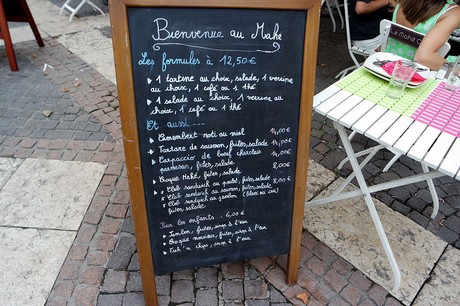 Bienvenue au Mahé
Les formules à 12,50€
1 tartine au choix, salade, 1 verrine
au choix, 1 café ou 1 thé
1 salade au choix, 1 verrine au
choix, 1 café ou 1 thé
Et aussi...
Camembert roti au miel 14,00€
Tartare de saumon, frites, salade 14,00€
Carpaccio de bœuf charolais 14,00€
parmesan, frites, salade
Croque Mahé, frites, salade 8,00€
Club sandwich au poulet, frites, salade 8,00€
Club sandwich au saumon, frites, salade
Club sandwich au jambon (blanc ou cru)
frites, salade
Pour les enfants : 6,00€
Jambon, frites, sirop à l'eau
Croque monsieur, frites, sirop à l'eau
Fish'n chips, sirop à l'eau